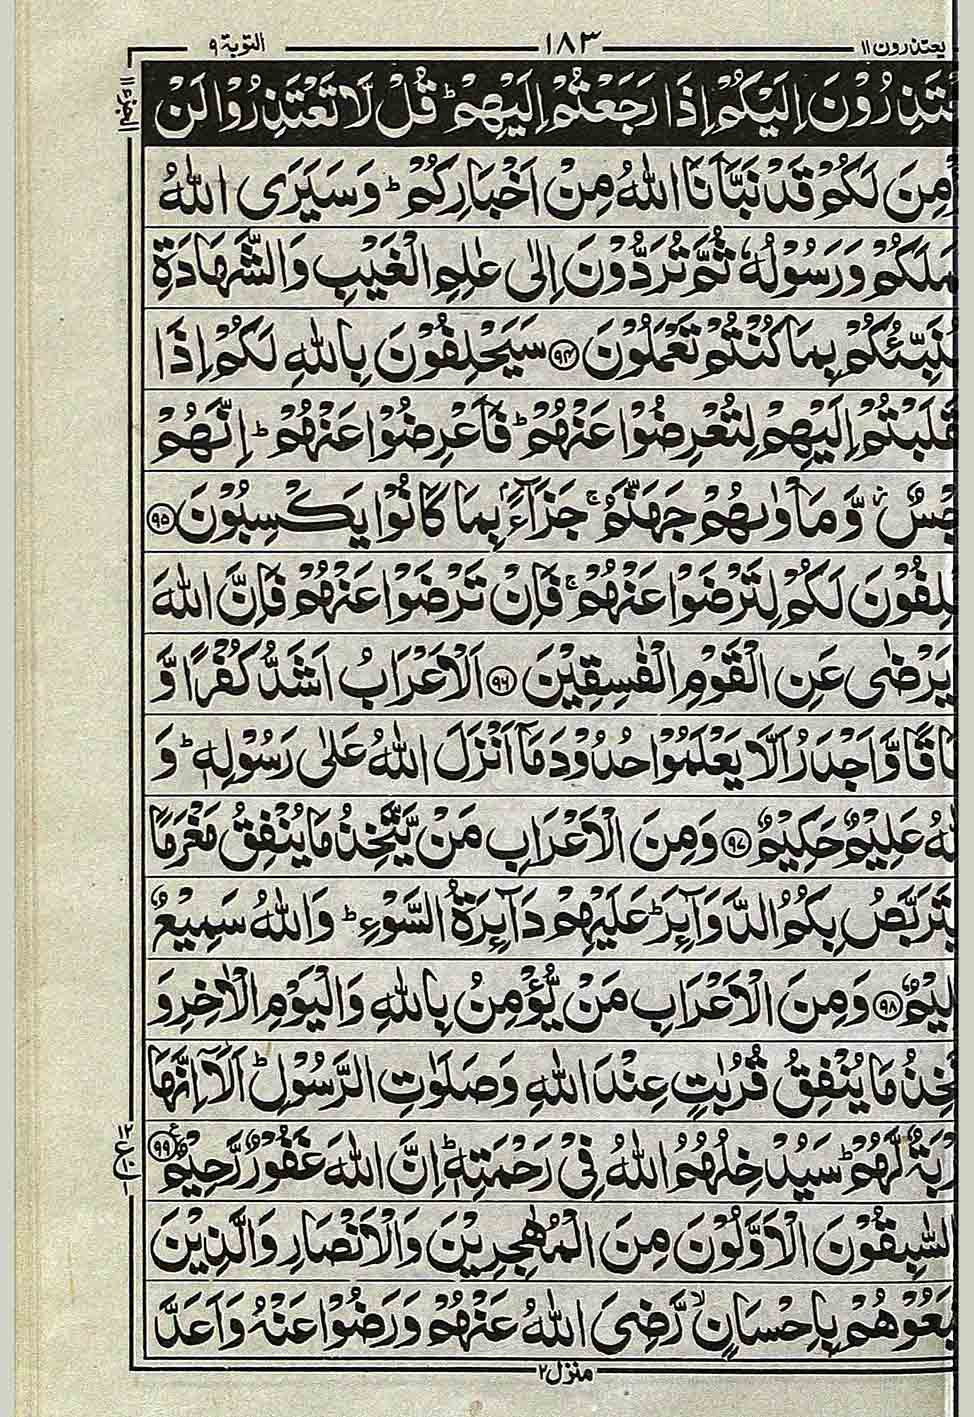 یعتذرون ۱۱ ۱۸۳ التوبة ۹
تَذِرُوْنَ اِلَيْكُمْ اِذَا رَجَعْتُمْ اِلَيْهِمْ ؕ قُلْ لَّا تَعْتَذِرُوْا لَنْ
ؤْمِنَ لَكُمْ قَدْ نَبَّاَنَا اللّٰهُ مِنْ اَخْبَارِكُمْ ؕ وَسَيَرَى اللّٰهُ
مَلَكُمْ وَرَسُوْلُهٗ ثُمَّ تُرَدُّوْنَ اِلٰى عٰلِمِ الْغَيْبِ وَالشَّهَادَةِ
يُنَبِّئُكُمْ بِمَا كُنْتُمْ تَعْمَلُوْنَ ﴿۹۴﴾ سَيَحْلِفُوْنَ بِاللّٰهِ لَكُمْ اِذَا
قَلَبْتُمْ اِلَيْهِمْ لِتُعْرِضُوْا عَنْهُمْ ؕ فَاَعْرِضُوْا عَنْهُمْ ؕ اِنَّهُمْ
جْسٌ ز وَّمَاْوٰىهُمْ جَهَنَّمُ ۚ جَزَآءًۢ بِمَا كَانُوْا يَكْسِبُوْنَ ﴿۹۵﴾
لِفُوْنَ لَكُمْ لِتَرْضَوْا عَنْهُمْ ۚ فَاِنْ تَرْضَوْا عَنْهُمْ فَاِنَّ اللّٰهَ
يَرْضٰى عَنِ الْقَوْمِ الْفٰسِقِيْنَ ﴿۹۶﴾ اَلْاَعْرَابُ اَشَدُّ كُفْرًا وَّ
اقًا وَّاَجْدَرُ اَلَّا يَعْلَمُوْا حُدُوْدَ مَآ اَنْزَلَ اللّٰهُ عَلٰى رَسُوْلِهٖ ؕ وَ
لّٰهُ عَلِيْمٌ حَكِيْمٌ ﴿۹۷﴾ وَمِنَ الْاَعْرَابِ مَنْ يَّتَّخِذُ مَا يُنْفِقُ مَغْرَمًا
يَتَرَبَّصُ بِكُمُ الدَّوَآئِرَ ؕ عَلَيْهِمْ دَآئِرَةُ السَّوْءِ ؕ وَاللّٰهُ سَمِيْعٌ
لِيْمٌ ﴿۹۸﴾ وَمِنَ الْاَعْرَابِ مَنْ يُّؤْمِنُ بِاللّٰهِ وَالْيَوْمِ الْاٰخِرِ وَ
خِذُ مَا يُنْفِقُ قُرُبٰتٍ عِنْدَ اللّٰهِ وَصَلَوٰتِ الرَّسُوْلِ ؕ اَلَآ اِنَّهَا
رْبَةٌ لَّهُمْ ؕ سَيُدْخِلُهُمُ اللّٰهُ فِيْ رَحْمَتِهٖ ؕ اِنَّ اللّٰهَ غَفُوْرٌ رَّحِيْمٌ ﴿۹۹﴾
لسّٰبِقُوْنَ الْاَوَّلُوْنَ مِنَ الْمُهٰجِرِيْنَ وَالْاَنْصَارِ وَالَّذِيْنَ
بَعُوْهُمْ بِاِحْسَانٍ ۙ رَّضِيَ اللّٰهُ عَنْهُمْ وَرَضُوْا عَنْهُ وَاَعَدَّ
منزل ۲